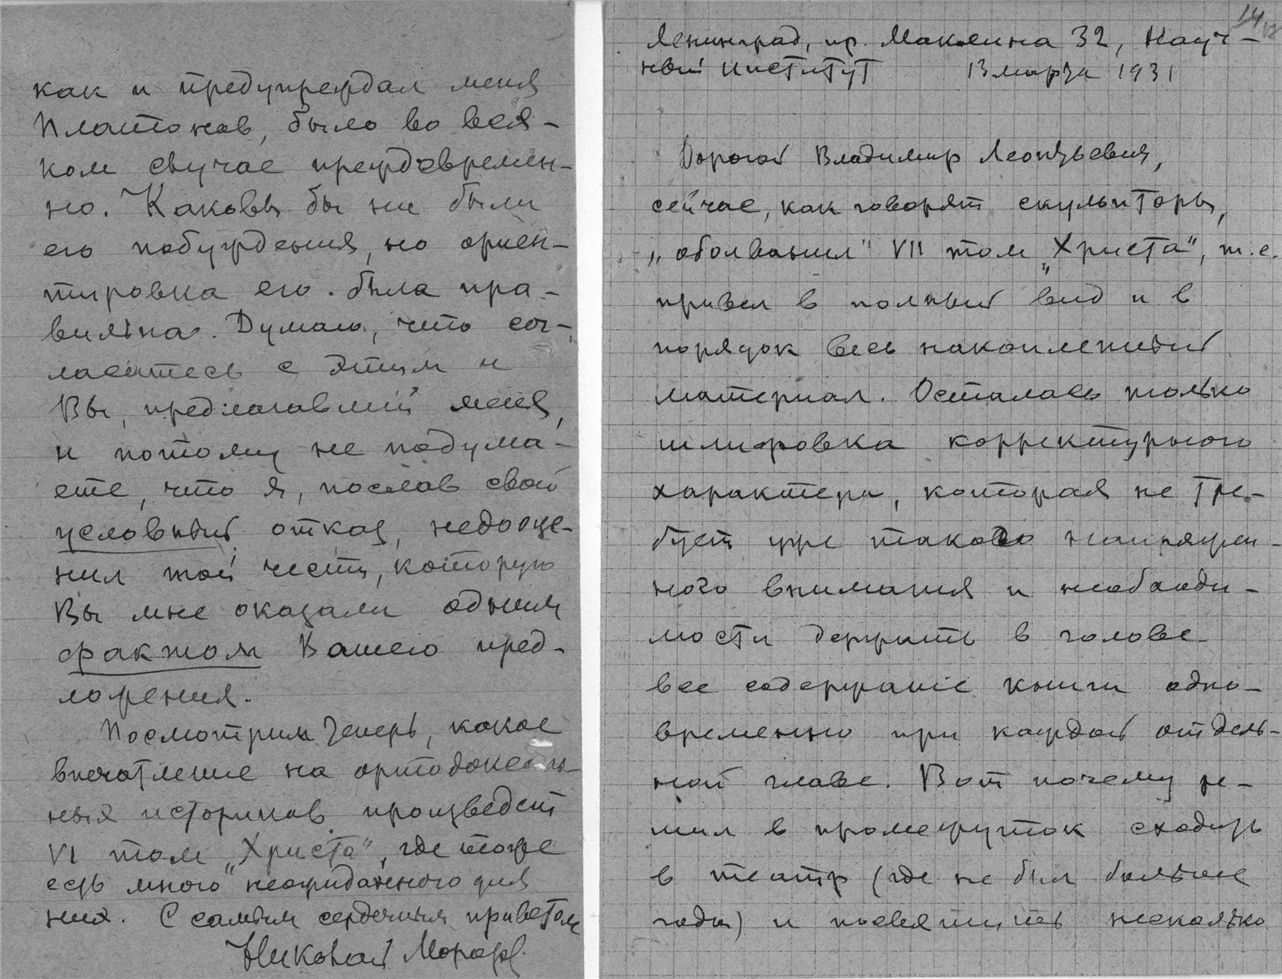 как и предупреждал меня
Платонов, было во вся-
ком случае преждевремен-
но. Каковы бы ни были
его побуждения, но ориен-
тировка его была пра-
вильна. Думаю, что сог-
ласитесь с этим и
Вы, предлагавший меня,
и потому не подума-
ете, что я, послав свой
условный отказ, недооце-
нил той чести, которую
Вы мне оказали одним
фактом Вашего пред-
ложения.
Посмотрим теперь, какое
впечатление на ортодоксаль-
ных историков произведет
VI том „Христа“, где тоже
есть много неожиданного для
них. С самым сердечным приветом
Николай Морозов.
14
Ленинград, пр. Маклина 32, Науч-
ный институт 13 марта 1931
Дорогой Владимир Леонтьевич,
сейчас, как говорят скульпторы,
„оболванил“ VII том „Христа“, т.е.
привел в полный вид и в
порядок весь накопленный
материал. Осталась только
шлифовка корректурного
характера, которая не тре-
бует уже такого напряжен-
ного внимания и необходи-
мости держать в голове
все содержание книги одно-
временно при каждой отдель-
ной главе. Вот почему ре-
шил в промежуток сходить
в театр (где не был больше
года) и посвятить несколько